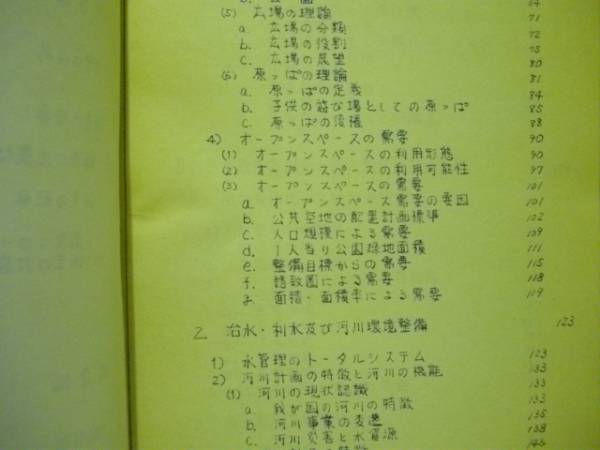 (5) 広場の理論 71
a. 広場の分類 72
b. 広場の役割 75
c. 広場の展望 80
(6) 原っぱの理論 81
a. 原っぱの定義 84
b. 子供の遊び場としての原っぱ 85
c. 原っぱの復権 88
4) オープンスペースの需要 90
(1) オープンスペースの利用形態 90
(2) オープンスペースの利用可能性 97
(3) オープンスペースの需要 101
a. オープンスペース需要の要因 101
b. 公共空地の配置計画標準 102
c. 人口規模による需要 109
d. 1人当り公園緑地面積 111
e. 整備目標からの需要 115
f. 誘致圏による需要 118
g. 面積・面積率による需要 119
2. 治水・利水及び河川環境整備 123
1) 水管理のトータルシステム 123
2) 河川計画の特徴と河川の機能 133
(1) 河川の現状認識 133
a. 我が国の河川の特徴 133
b. 河川事業の変遷 135
c. 河川災害と水資源 138